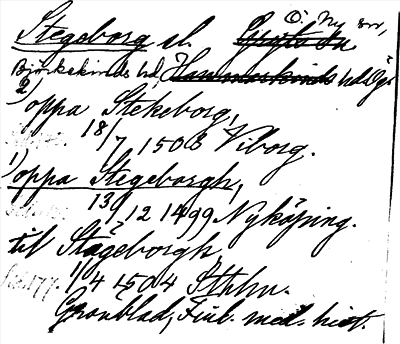 Stegeborg sl. Ö. Ny sn,
Björkekinds hd, Hammarkinds hd, Ög.
2) oppa Stekeborg,
18/7 1506 Viborg.
1) oppa Stegeborgh,
13/12 1499 Nyköping.
til Stägeborgh,
1/4 1504 Sthlm.
Grönblad, Finl. med. hist.